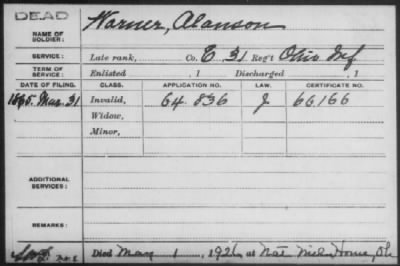 DEAD
NAME OF SOLDIER: Warner, Alanson
SERVICE: Late rank, Co. E 31 Reg't Ohio Inf
TERM OF SERVICE: Enlisted , 1 Discharged , 1
DATE OF FILING. CLASS. APPLICATION NO. LAW. CERTIFICATE NO.
1865. Mar. 31 Invalid, 64 836 J 66166
Widow,
Minor,
ADDITIONAL SERVICES:
REMARKS:
Died May 1, 1926, at Nat. Mil. Home, Oh